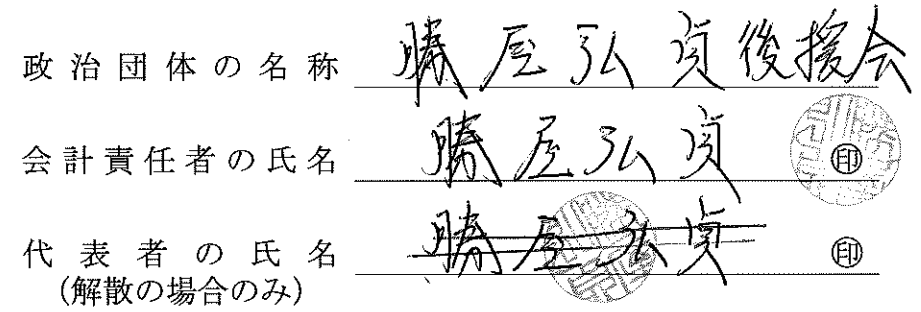 政治団体の名称 勝屋弘貞後援会
会計責任者の氏名 勝屋弘貞 印
代表者の氏名 勝屋弘貞 印
(解散の場合のみ)